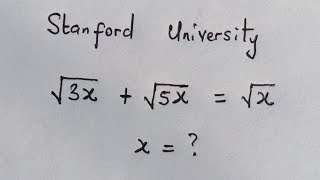 Stanford University
√3x + √5x = √x
x = ?